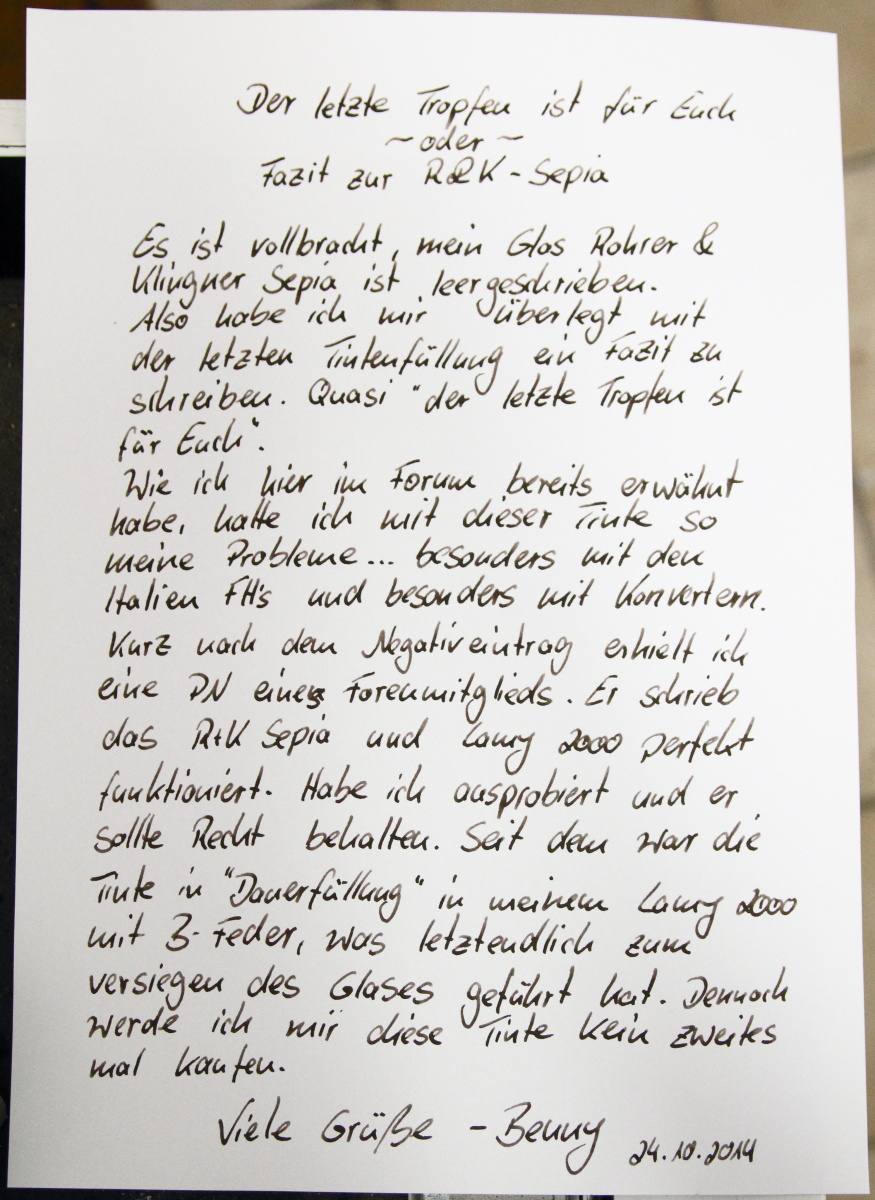 Der letzte Tropfen ist für Euch
~ oder ~
Fazit zur R&K - Sepia
Es ist vollbracht, mein Glas Rohrer &
Klingner Sepia ist leergeschrieben.
Also habe ich mir überlegt mit
der letzten Tintenfüllung ein Fazit zu
schreiben. Quasi "der letzte Tropfen ist
für Euch".
Wie ich hier im Forum bereits erwähnt
habe, hatte ich mit dieser Tinte so
meine Probleme... besonders mit den
Italien FH's und besonders mit Konvertern.
Kurz nach dem Negativeintrag erhielt ich
eine PN eines Forenmitglieds. Er schrieb
das R+K Sepia und Lamy 2000 perfekt
funktioniert. Habe ich ausprobiert und er
sollte Recht behalten. Seit dem war die
Tinte in "Dauerfüllung" in meinem Lamy 2000
mit B-Feder, was letztendlich zum
versiegen des Glases geführt hat. Dennoch
werde ich mir diese Tinte kein zweites
mal kaufen.
Viele Grüße - Benny
24.10.2014